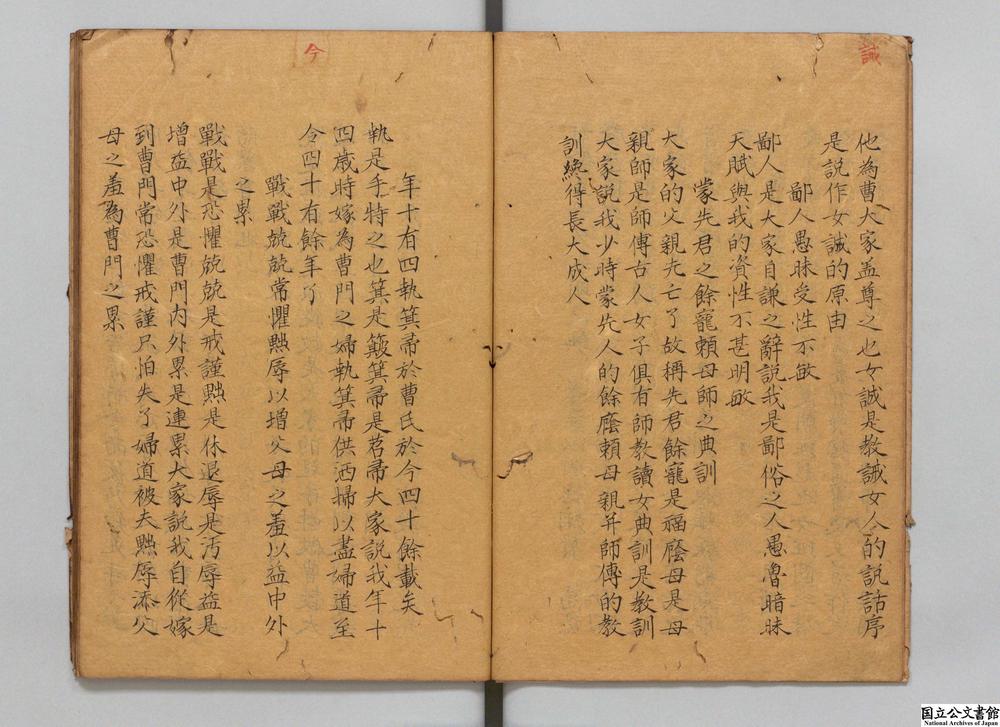 誡
他為曹大家盖尊之也女誡是教誡女人的説話序
是説作女誡的原由
鄙人愚昧受性不敏
鄙人是大家自謙之辭説我是鄙俗之人愚魯暗昧
天賦與我的資性不甚明敏
蒙先君之餘寵頼母師之典訓
大家的父親先亡了故稱先君餘寵是福廕母是母
親師是師傅古人女子俱有師教讀女典訓是教訓
大家説我少時蒙先人的餘廕頼母親并師傅的教
訓纔得長大成人
今
年十有四執箕帚於曹氏於今四十餘載矣
執是手持之也箕是簸箕帚是苕帚大家説我年十
四歳時嫁為曹門之婦執箕帚供洒掃以盡婦道至
今四十有餘年了
戰戰兢兢常懼黜辱以增父母之羞以益中外
之累
戰戰是恐懼兢兢是戒謹黜是休退辱是汚辱益是
增益中外是曹門内外累是連累大家説我自從嫁
到曹門常恐懼戒謹只怕失了婦道被夫黜辱添父
母之羞為曹門之累
国立公文書館
National Archives of Japan